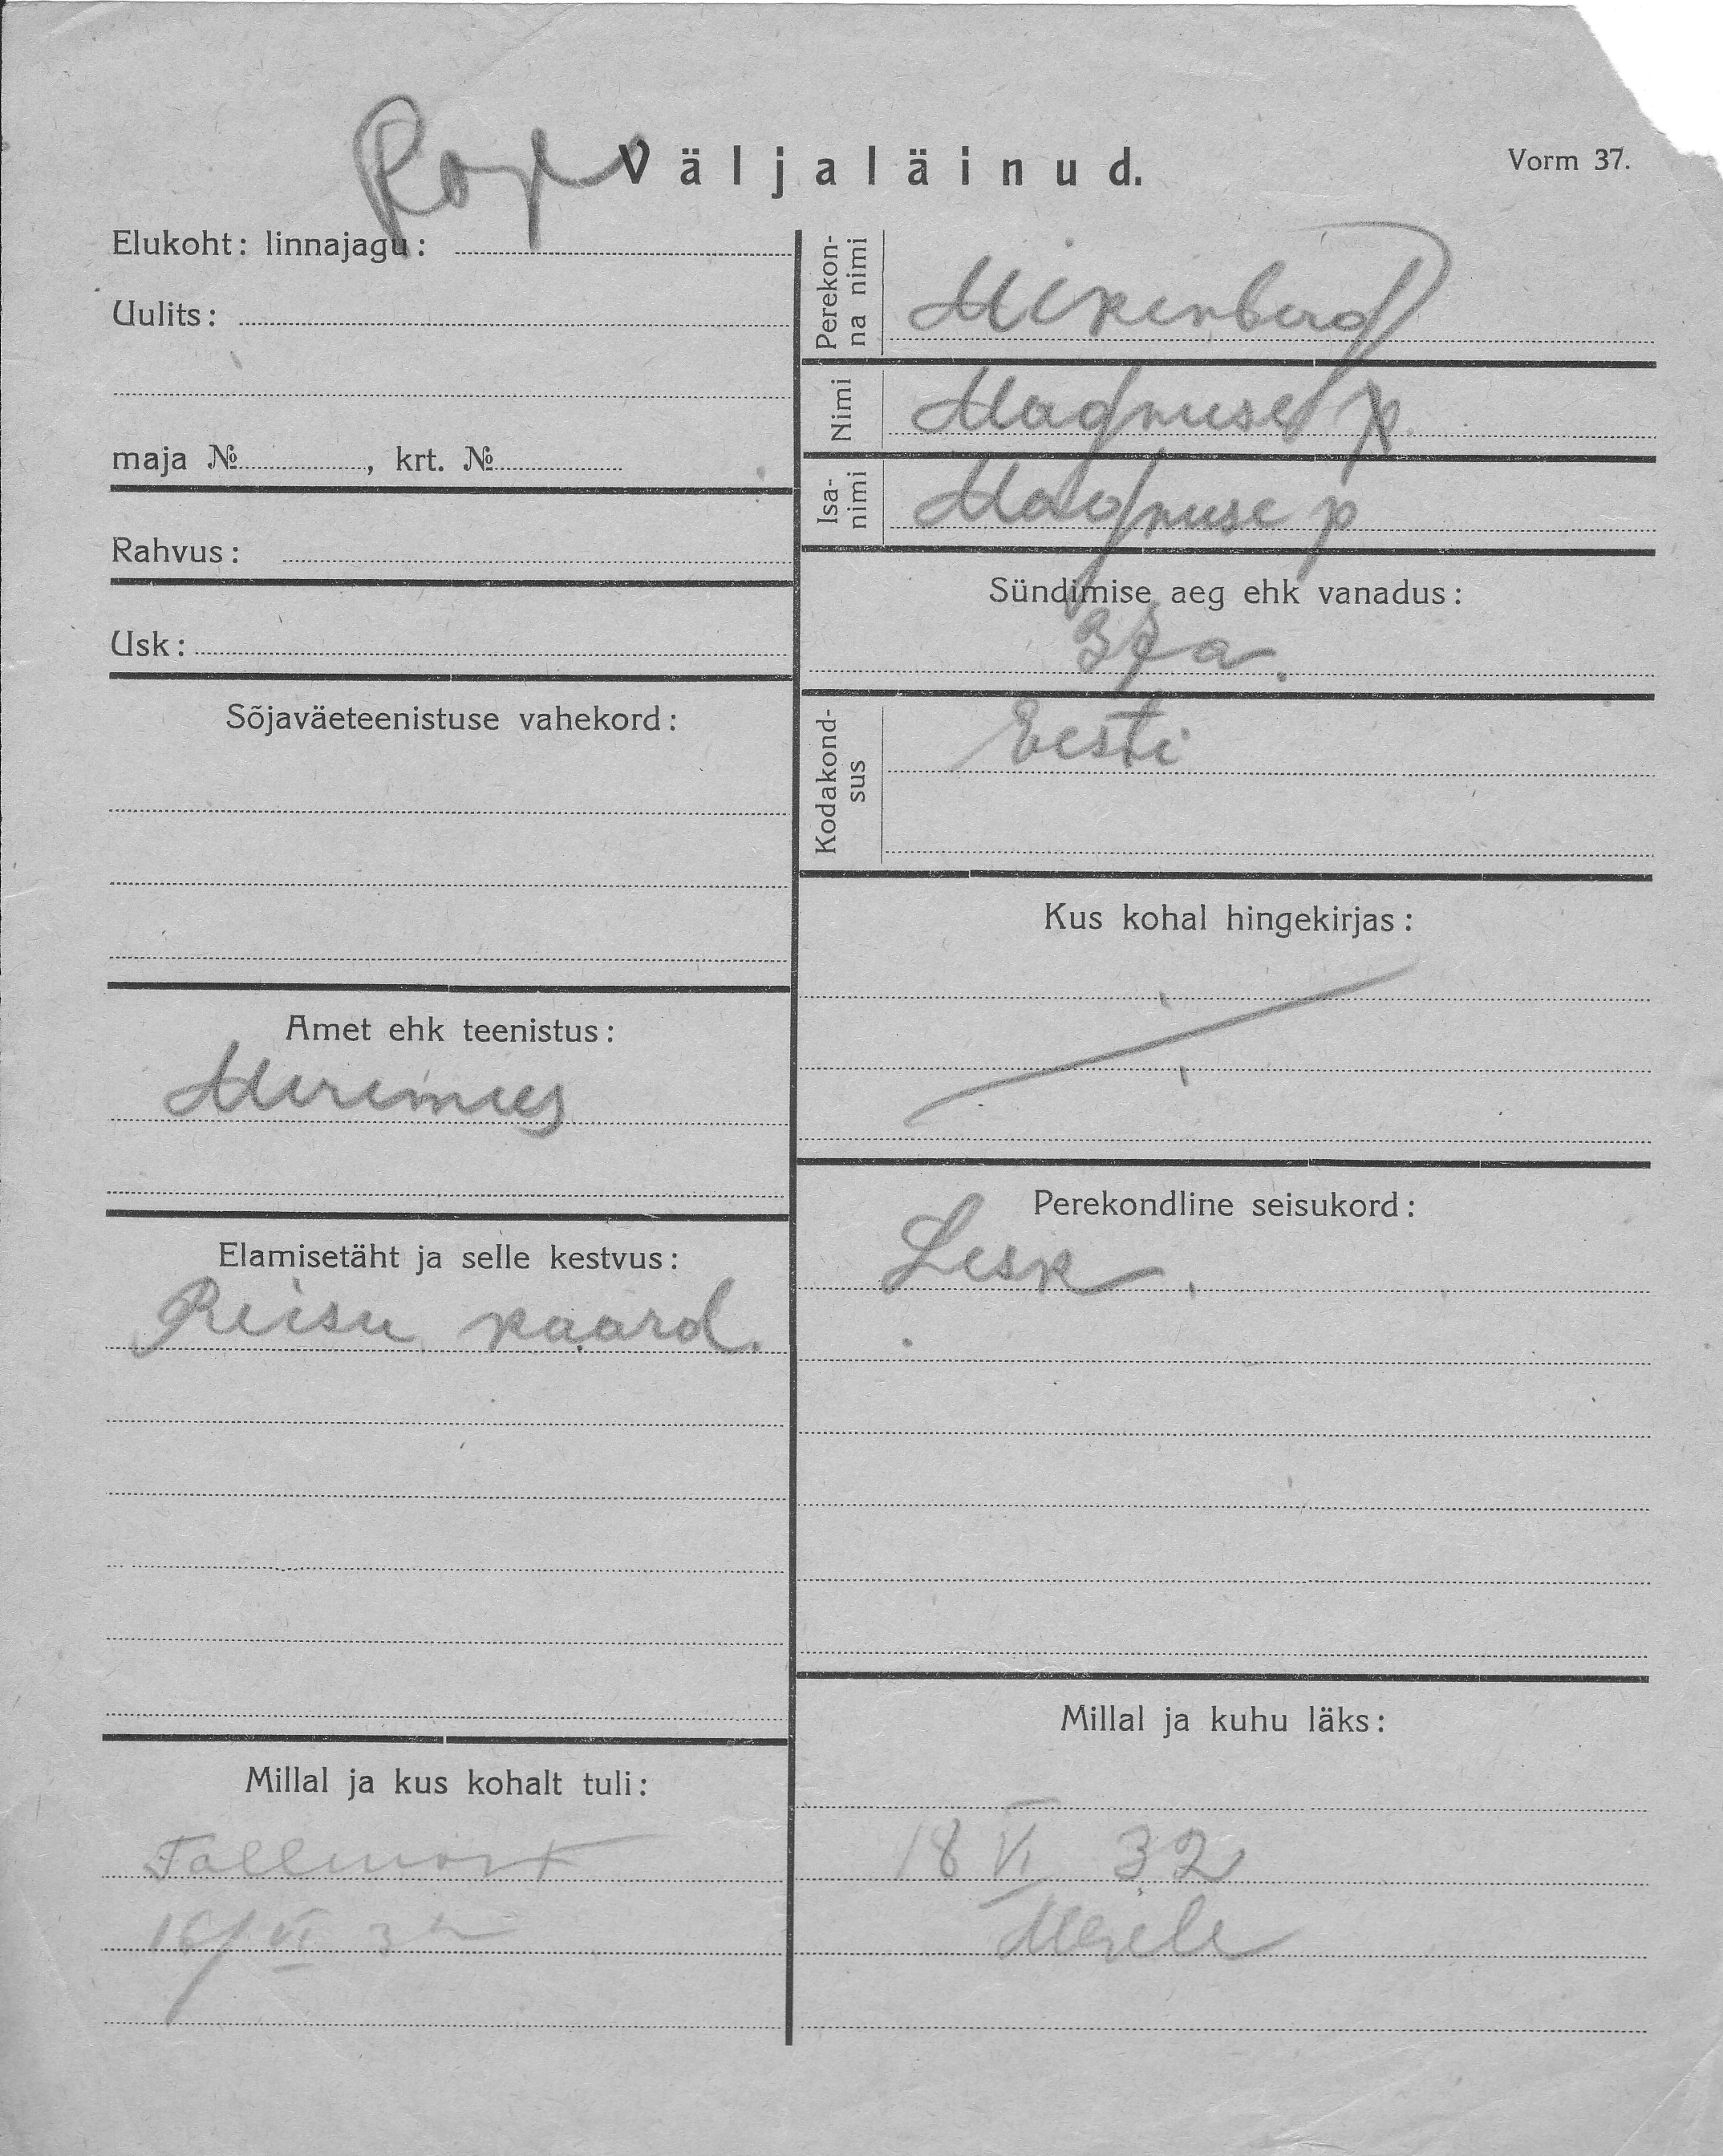 Väljaläinud.
Vorm 37.
Elukoht: linnajagu:
Uulits:
maja №, krt. №
Rahvus:
Usk:
Sõjaväeteenistuse vahekord:
Amet ehk teenistus:
Meremees
Elamisetäht ja selle kestvus:
Reisu kaard.
Millal ja kus kohalt tuli:
16/VI 32
Perekon-
na nimi
Mikenberg
Nimi
Magnuse p.
Isa-
nimi
Magnuse p
Sündimise aeg ehk vanadus:
37 a.
Kodakond-
sus
Eesti
Kus kohal hingekirjas:
Perekondline seisukord:
Lesk.
Millal ja kuhu läks:
18 VI 32
Merele